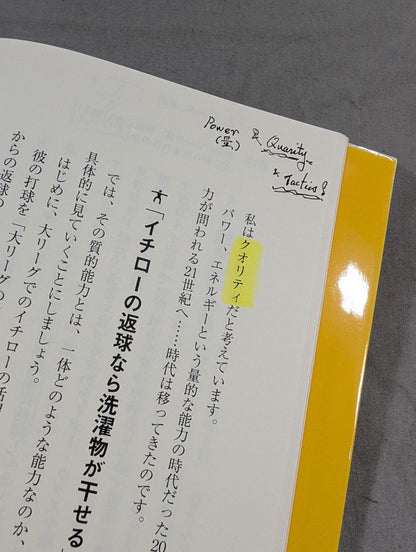 Power & Quarity
(量) & Tactics!
私はクオリティだと考えています。
パワー、エネルギーという量的な能力の時代だった20
力が問われる21世紀へ……時代は移ってきたのです。
「イチローの返球なら洗濯物が干せる
では、その質的能力とは、一体どのような能力なのか、
具体的に見ていくことにしましょう。
はじめに、大リーグでのイチローの活
彼の打球を「大リーグの
からの返球の